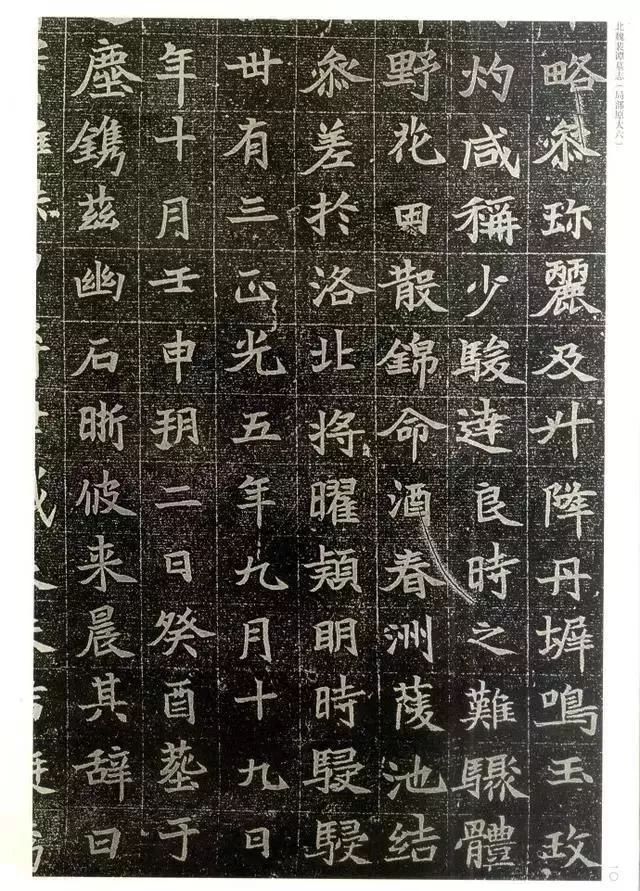 北魏裴谭墓志(局部原大六)
略叅珎麗及升降丹墀鳴玉政
灼咸稱少駿達良時之難驟體
野花田散錦命酒春洲蔆池結
叅差於洛北将曜頴明時駸駸
丗有三正光五年九月十九日
年十月壬申玥二日癸酉塟于
塵鐫兹幽石晰彼来晨其辞曰
一〇